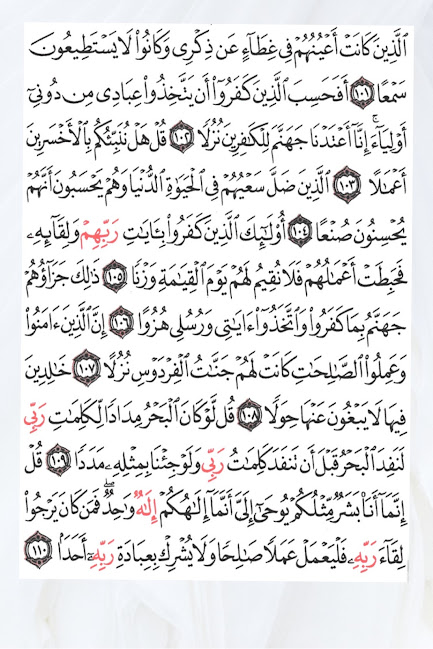 ٱلَّذِينَ كَانَتْ أَعْيُنُهُمْ فِى غِطَآءٍ عَن ذِكْرِى وَكَانُوا۟ لَا يَسْتَطِيعُونَ
سَمْعًا ١٠١ أَفَحَسِبَ ٱلَّذِينَ كَفَرُوٓا۟ أَن يَتَّخِذُوا۟ عِبَادِى مِن دُونِىٓ
أَوْلِيَآءَ ۚ إِنَّآ أَعْتَدْنَا جَهَنَّمَ لِلْكَـٰفِرِينَ نُزُلًا ١٠٢ قُلْ هَلْ نُنَبِّئُكُم بِٱلْأَخْسَرِينَ
أَعْمَـٰلًا ١٠٣ ٱلَّذِينَ ضَلَّ سَعْيُهُمْ فِى ٱلْحَيَوٰةِ ٱلدُّنْيَا وَهُمْ يَحْسَبُونَ أَنَّهُمْ
يُحْسِنُونَ صُنْعًا ١٠٤ أُو۟لَـٰٓئِكَ ٱلَّذِينَ كَفَرُوا۟ بِـَٔايَـٰتِ رَبِّهِمْ وَلِقَآئِهِۦ
فَحَبِطَتْ أَعْمَـٰلُهُمْ فَلَا نُقِيمُ لَهُمْ يَوْمَ ٱلْقِيَـٰمَةِ وَزْنًا ١٠٥ ذَٰلِكَ جَزَآؤُهُمْ
جَهَنَّمُ بِمَا كَفَرُوا۟ وَٱتَّخَذُوٓا۟ ءَايَـٰتِى وَرُسُلِى هُزُوًا ١٠٦ إِنَّ ٱلَّذِينَ ءَامَنُوا۟
وَعَمِلُوا۟ ٱلصَّـٰلِحَـٰتِ كَانَتْ لَهُمْ جَنَّـٰتُ ٱلْفِرْدَوْسِ نُزُلًا ١٠٧ خَـٰلِدِينَ
فِيهَا لَا يَبْغُونَ عَنْهَا حِوَلًا ١٠٨ قُل لَّوْ كَانَ ٱلْبَحْرُ مِدَادًا لِّكَلِمَـٰتِ رَبِّى
لَنَفِدَ ٱلْبَحْرُ قَبْلَ أَن تَنفَدَ كَلِمَـٰتُ رَبِّى وَلَوْ جِئْنَا بِمِثْلِهِۦ مَدَدًا ١٠٩ قُلْ
إِنَّمَآ أَنَا۠ بَشَرٌ مِّثْلُكُمْ يُوحَىٰٓ إِلَىَّ أَنَّمَآ إِلَـٰهُكُمْ إِلَـٰهٌ وَٰحِدٌ ۖ فَمَن كَانَ يَرْجُوا۟
لِقَآءَ رَبِّهِۦ فَلْيَعْمَلْ عَمَلًا صَـٰلِحًا وَلَا يُشْرِكْ بِعِبَادَةِ رَبِّهِۦٓ أَحَدًۢا ١١٠